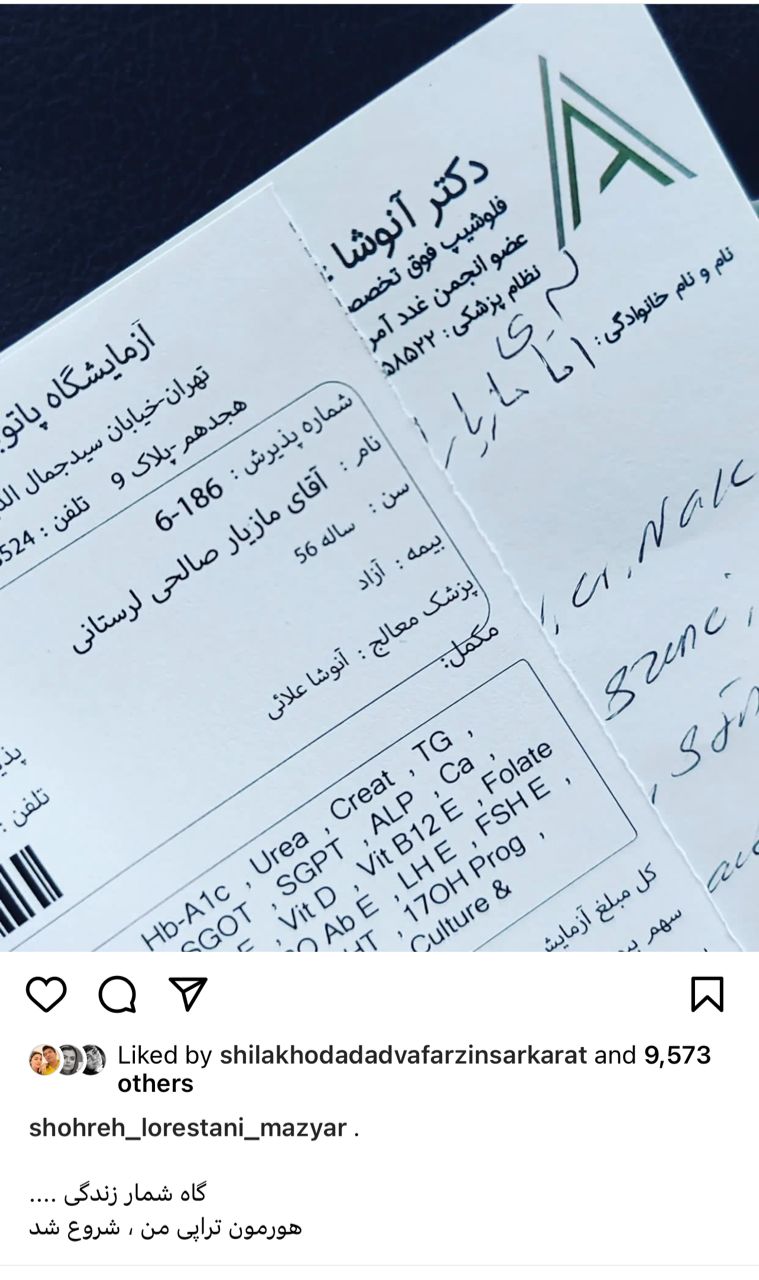 دکتر آنوشا
فلوشیپ فوق تخصص
عضو انجمن غدد آمر
نظام پزشکی: ۵۸۵۲۲
نام و نام خانوادگی:
آزمایشگاه پاتو
تهران-خیابان سیدجمال الد
هجدهم-پلاک و
تلفن : 524
شماره پذیرش : 6-186
نام : آقای مازیار صالحی لرستانی
سن : 56 ساله
بیمه : آزاد
پزشک معالج : آنوشا علائی
مکمل:
تلفن :
Hb-A1c , Urea , Creat , TG ,
SGOT , SGPT , ALP , Ca ,
E , Vit D , Vit B12 E , Folate
Ab E , LH E , FSH E ,
HT , 17OH Prog ,
Culture &
کل مبلغ آزمایش
سهم
Liked by shilakhodadadvafarzinsarkarat and 9,573
others
shohreh_lorestani_mazyar .
گاه شمار زندگی ....
هورمون تراپی من ، شروع شد